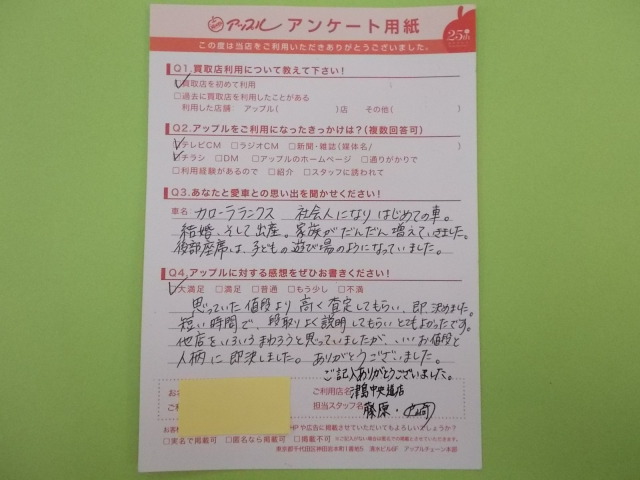 アップル アンケート用紙
25th
この度は当店をご利用いただきありがとうございました。
Q1.買取店利用について教えて下さい!
□買取店を初めて利用
□過去に買取店を利用したことがある
利用した店舗 アップル( )店 その他( )
Q2.アップルをご利用になったきっかけは?(複数回答可)
□テレビCM □ラジオCM □新聞・雑誌(媒体名/ )
□チラシ □DM □アップルのホームページ □通りがかりで
□利用経験があるので □紹介 □スタッフに誘われて
Q3.あなたと愛車との思い出を聞かせください!
車名 カローラランクス 社会人になり はじめての車。
結婚、そして出産。家族がだんだん増えていきました。
後部座席は、子どもの遊び場のようになっていました。
Q4.アップルに対する感想をぜひお書きください!
□大満足 □満足 □普通 □もう少し □不満
思っていた値段より高く査定してもらい、即決めました。
短い時間で、段取りよく説明してもらいとてもよかったです。
他店をいろいろまわろうと思っていましたが、いいお値段と
人柄に即決しました。ありがとうございました。
ご記入ありがとうございました。
ご利用店名 津島中央通店
担当スタッフ名 藤原・
HPや広告に掲載させていただいてもよろしいでしょうか?
□実名で掲載可 □匿名なら掲載可 □掲載不可 ※ご記入がない場合は匿名での掲載とさせていただきます。
東京都千代田区神田岩本町1番地5 清水ビル6F アップルチェーン本部